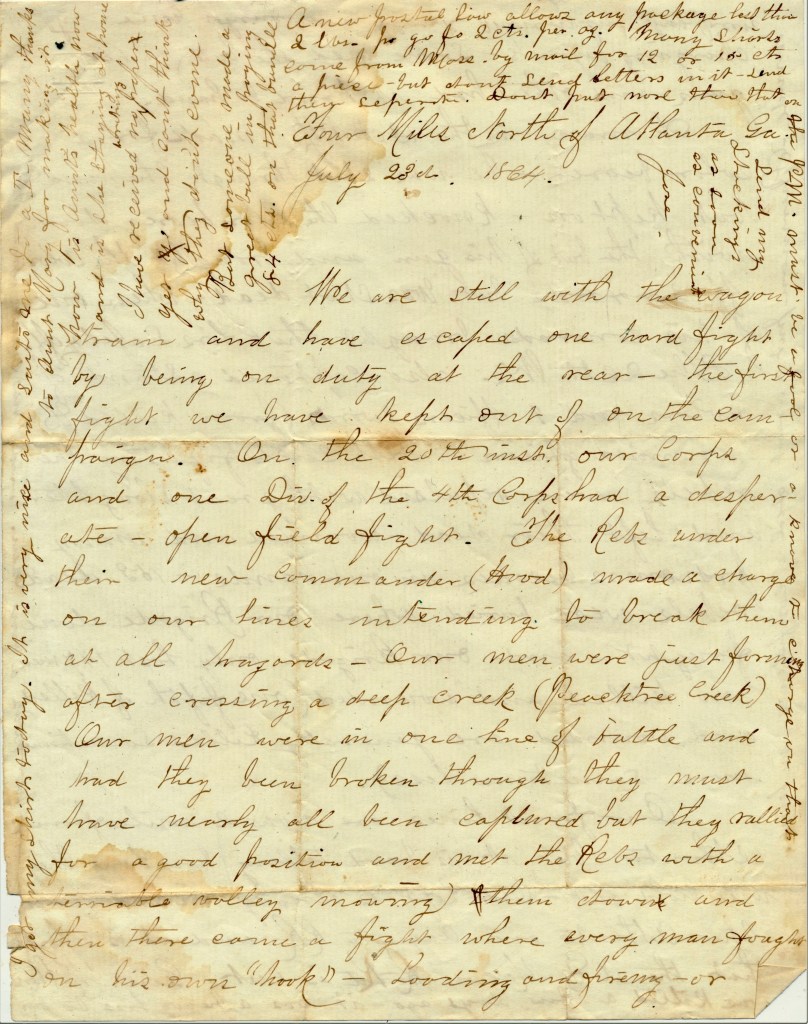 A new postal law allows any package less than
2 lbs. to go for 2 cts. per oz. Many shirts
come from Mass. by mail for 12 or 15 cts
a piece - but dont send letters in it - send
them seperate. Dont put more than that on
Four Miles North of Atlanta Ga.
July 23d. 1864.
We are still with the wagon
train and have escaped one hard fight
by being on duty at the rear - the first
fight we have kept out of on the cam-
paign. On the 20th inst. our Corps
and one Div. of the 4th Corps had a desper-
ate - open field fight. The Rebs under
their new commander (Hood) made a charge
on our lines intending to break them
at all hazards - Our men were just forming
after crossing a deep creek (Peachtree Creek)
Our men were in one line of battle and
had they been broken through they must
have nearly all been captured but they rallied
for a good position and met the Rebs with a
terrible volley mowing them down and
then there came a fight where every man fought
on his own "hook" - Loading and firing - or
I got my shirt today. It is very nice and suits me to a T. Many thanks
to Aunt Mary for making it
How is Aunt's health now
and is she staying at home
I have received no papers
yet and cant think
why they dont come.
But someone made a
great bull in paying
84 cts. on that bundle
the P.M. must be a fool or a knave to charge on that
Send my
Stockings
as soon
as convenient
Jose -